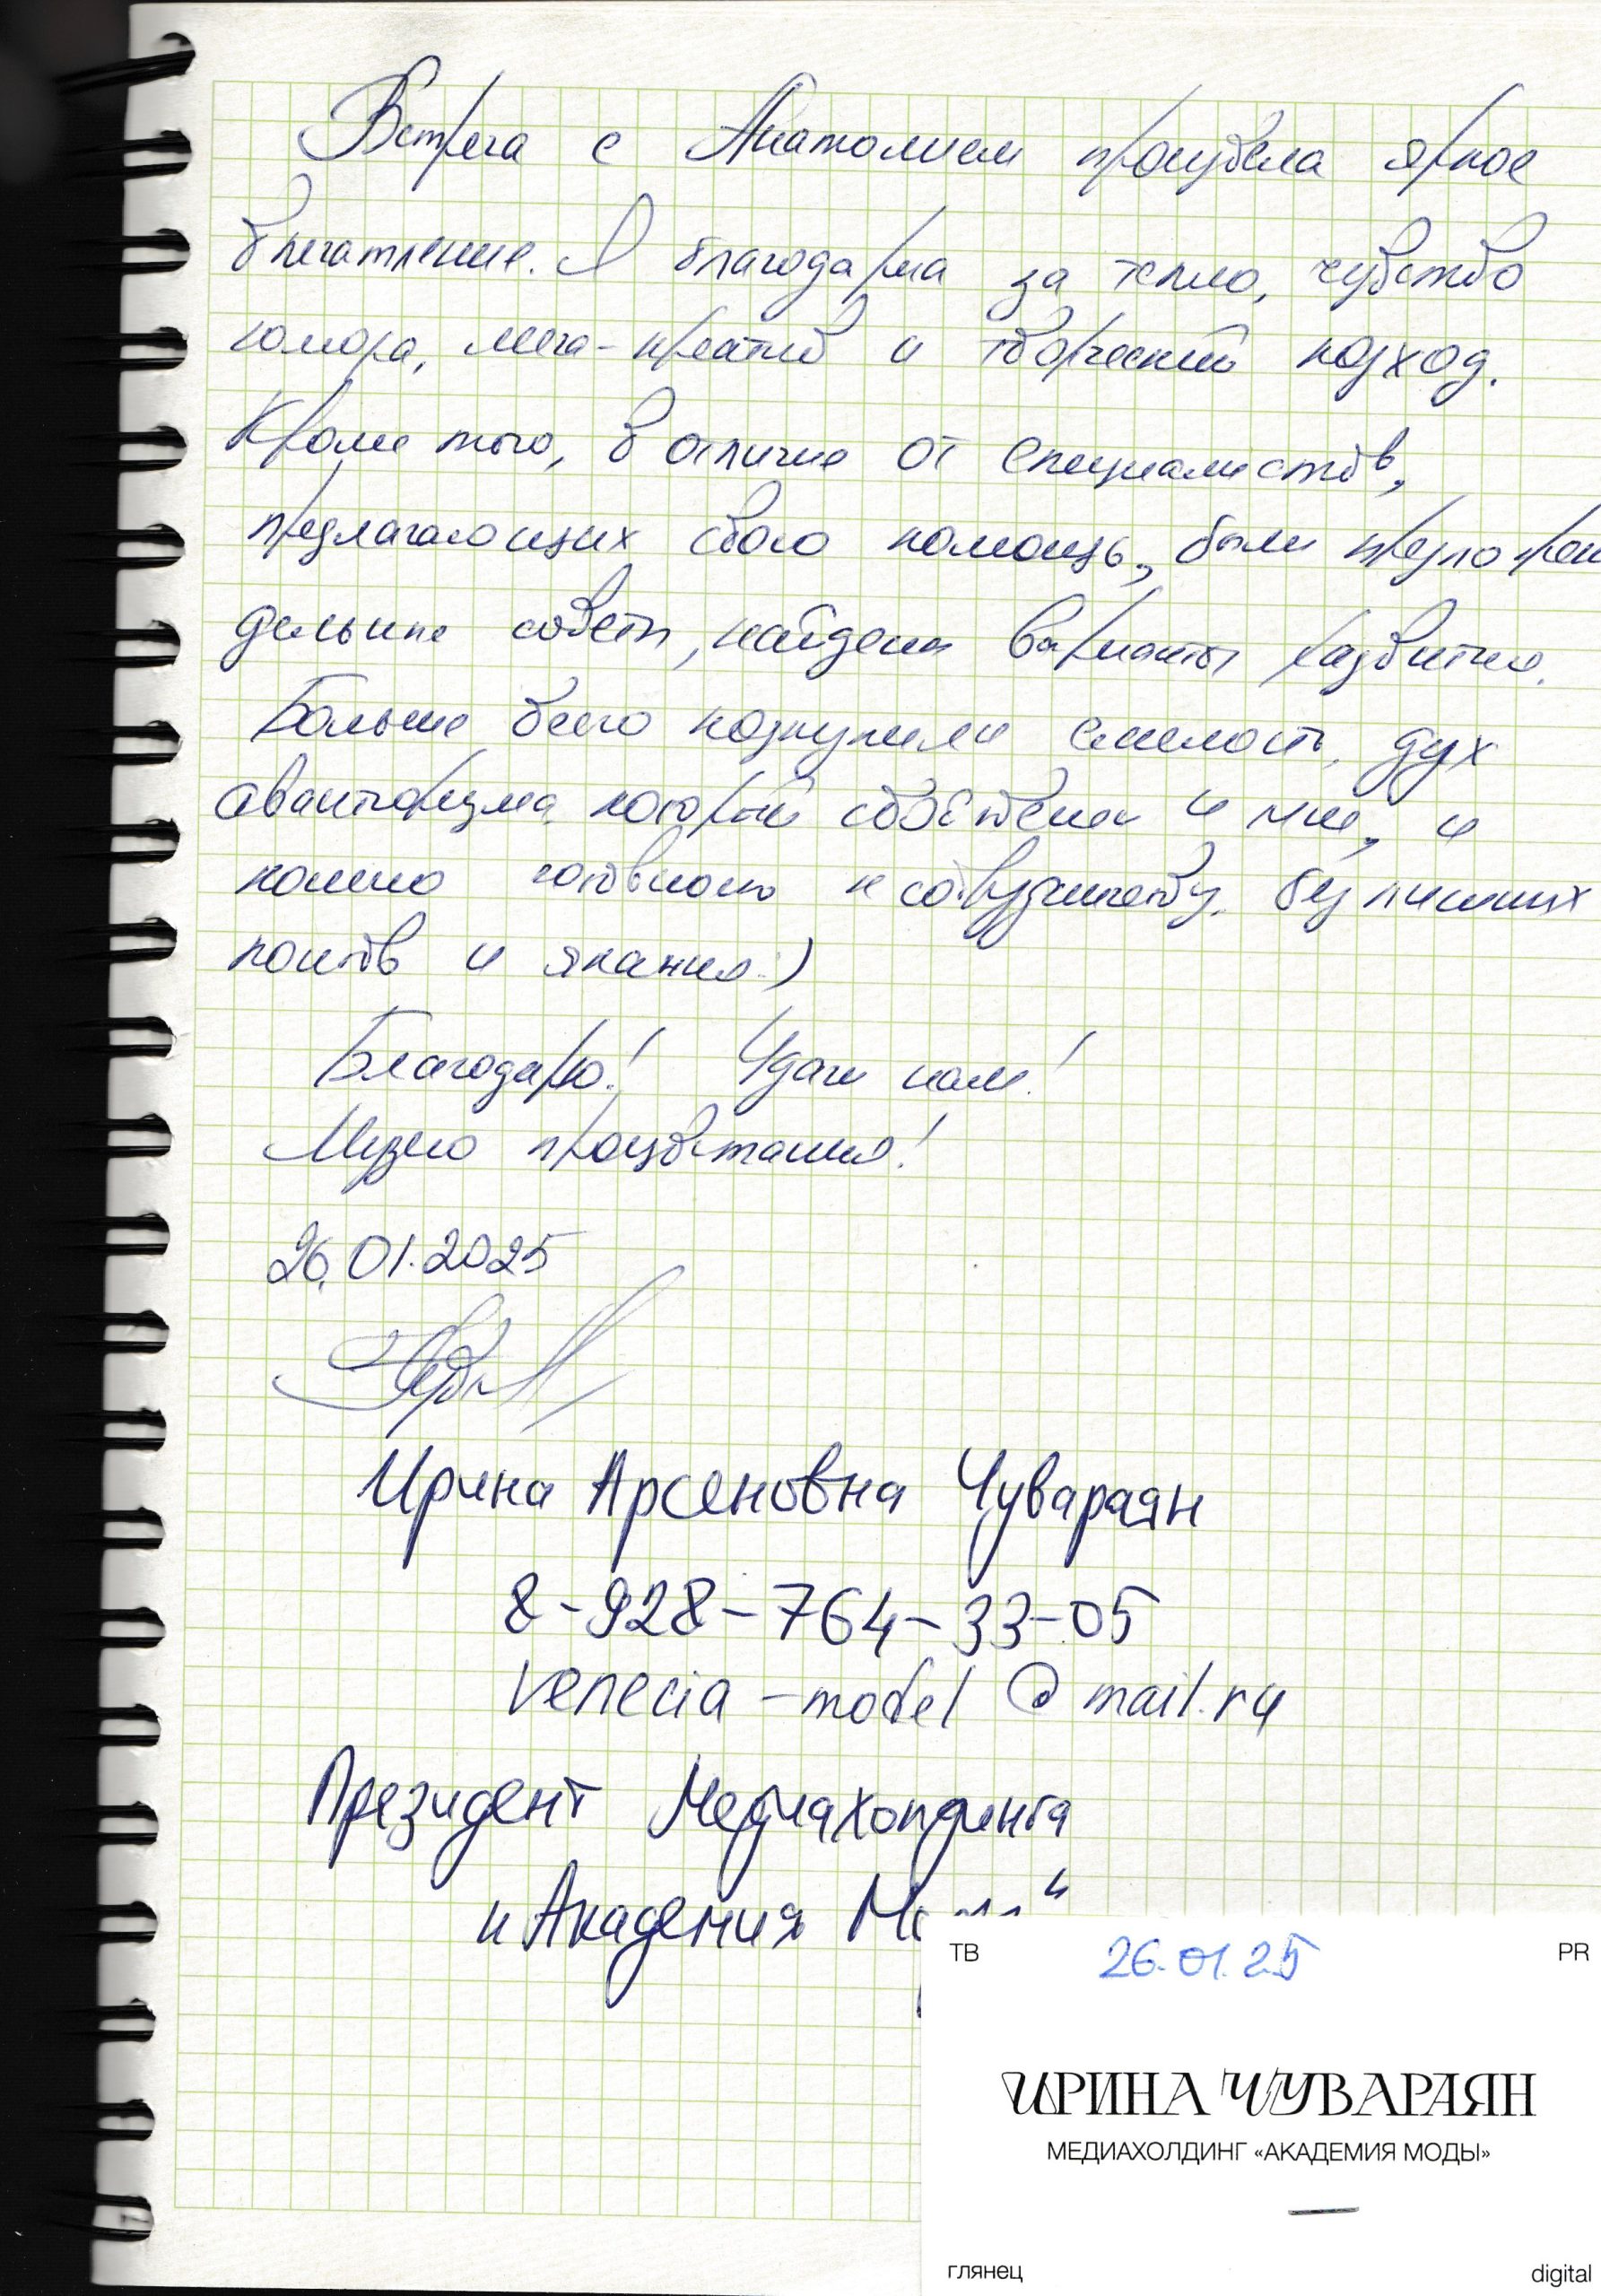 Встреча с Анатолием произвела яркое
впечатление. Я благодарна за тепло, чувство
юмора, мега-креатив и творческий подход.
Кроме того, в отличие от специалистов,
предлагающих свою помощь, были предложен
дельные советы, найдены варианты развития.
Больше всего подкупили смелость, дух
авантюризма, который свойственен и мне, и
полная готовность к сотрудничеству, без лишних
понтов и якания:)
Благодарю! Удачи нам!
Музею процветания!
26.01.2025
Ирина Арсеновна Чувараян
8-928-764-33-05
venecia-model@mail.ru
Президент Медиахолдинга
"Академия
ТВ 26.01.25 PR
ИРИНА ЧУВАРАЯН
МЕДИАХОЛДИНГ «АКАДЕМИЯ МОДЫ»
глянец digital